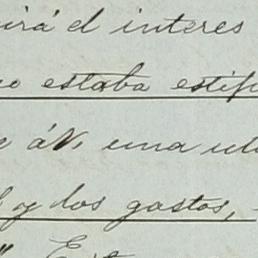 irá el interes
estaba estip
á V. una
y los gastos,